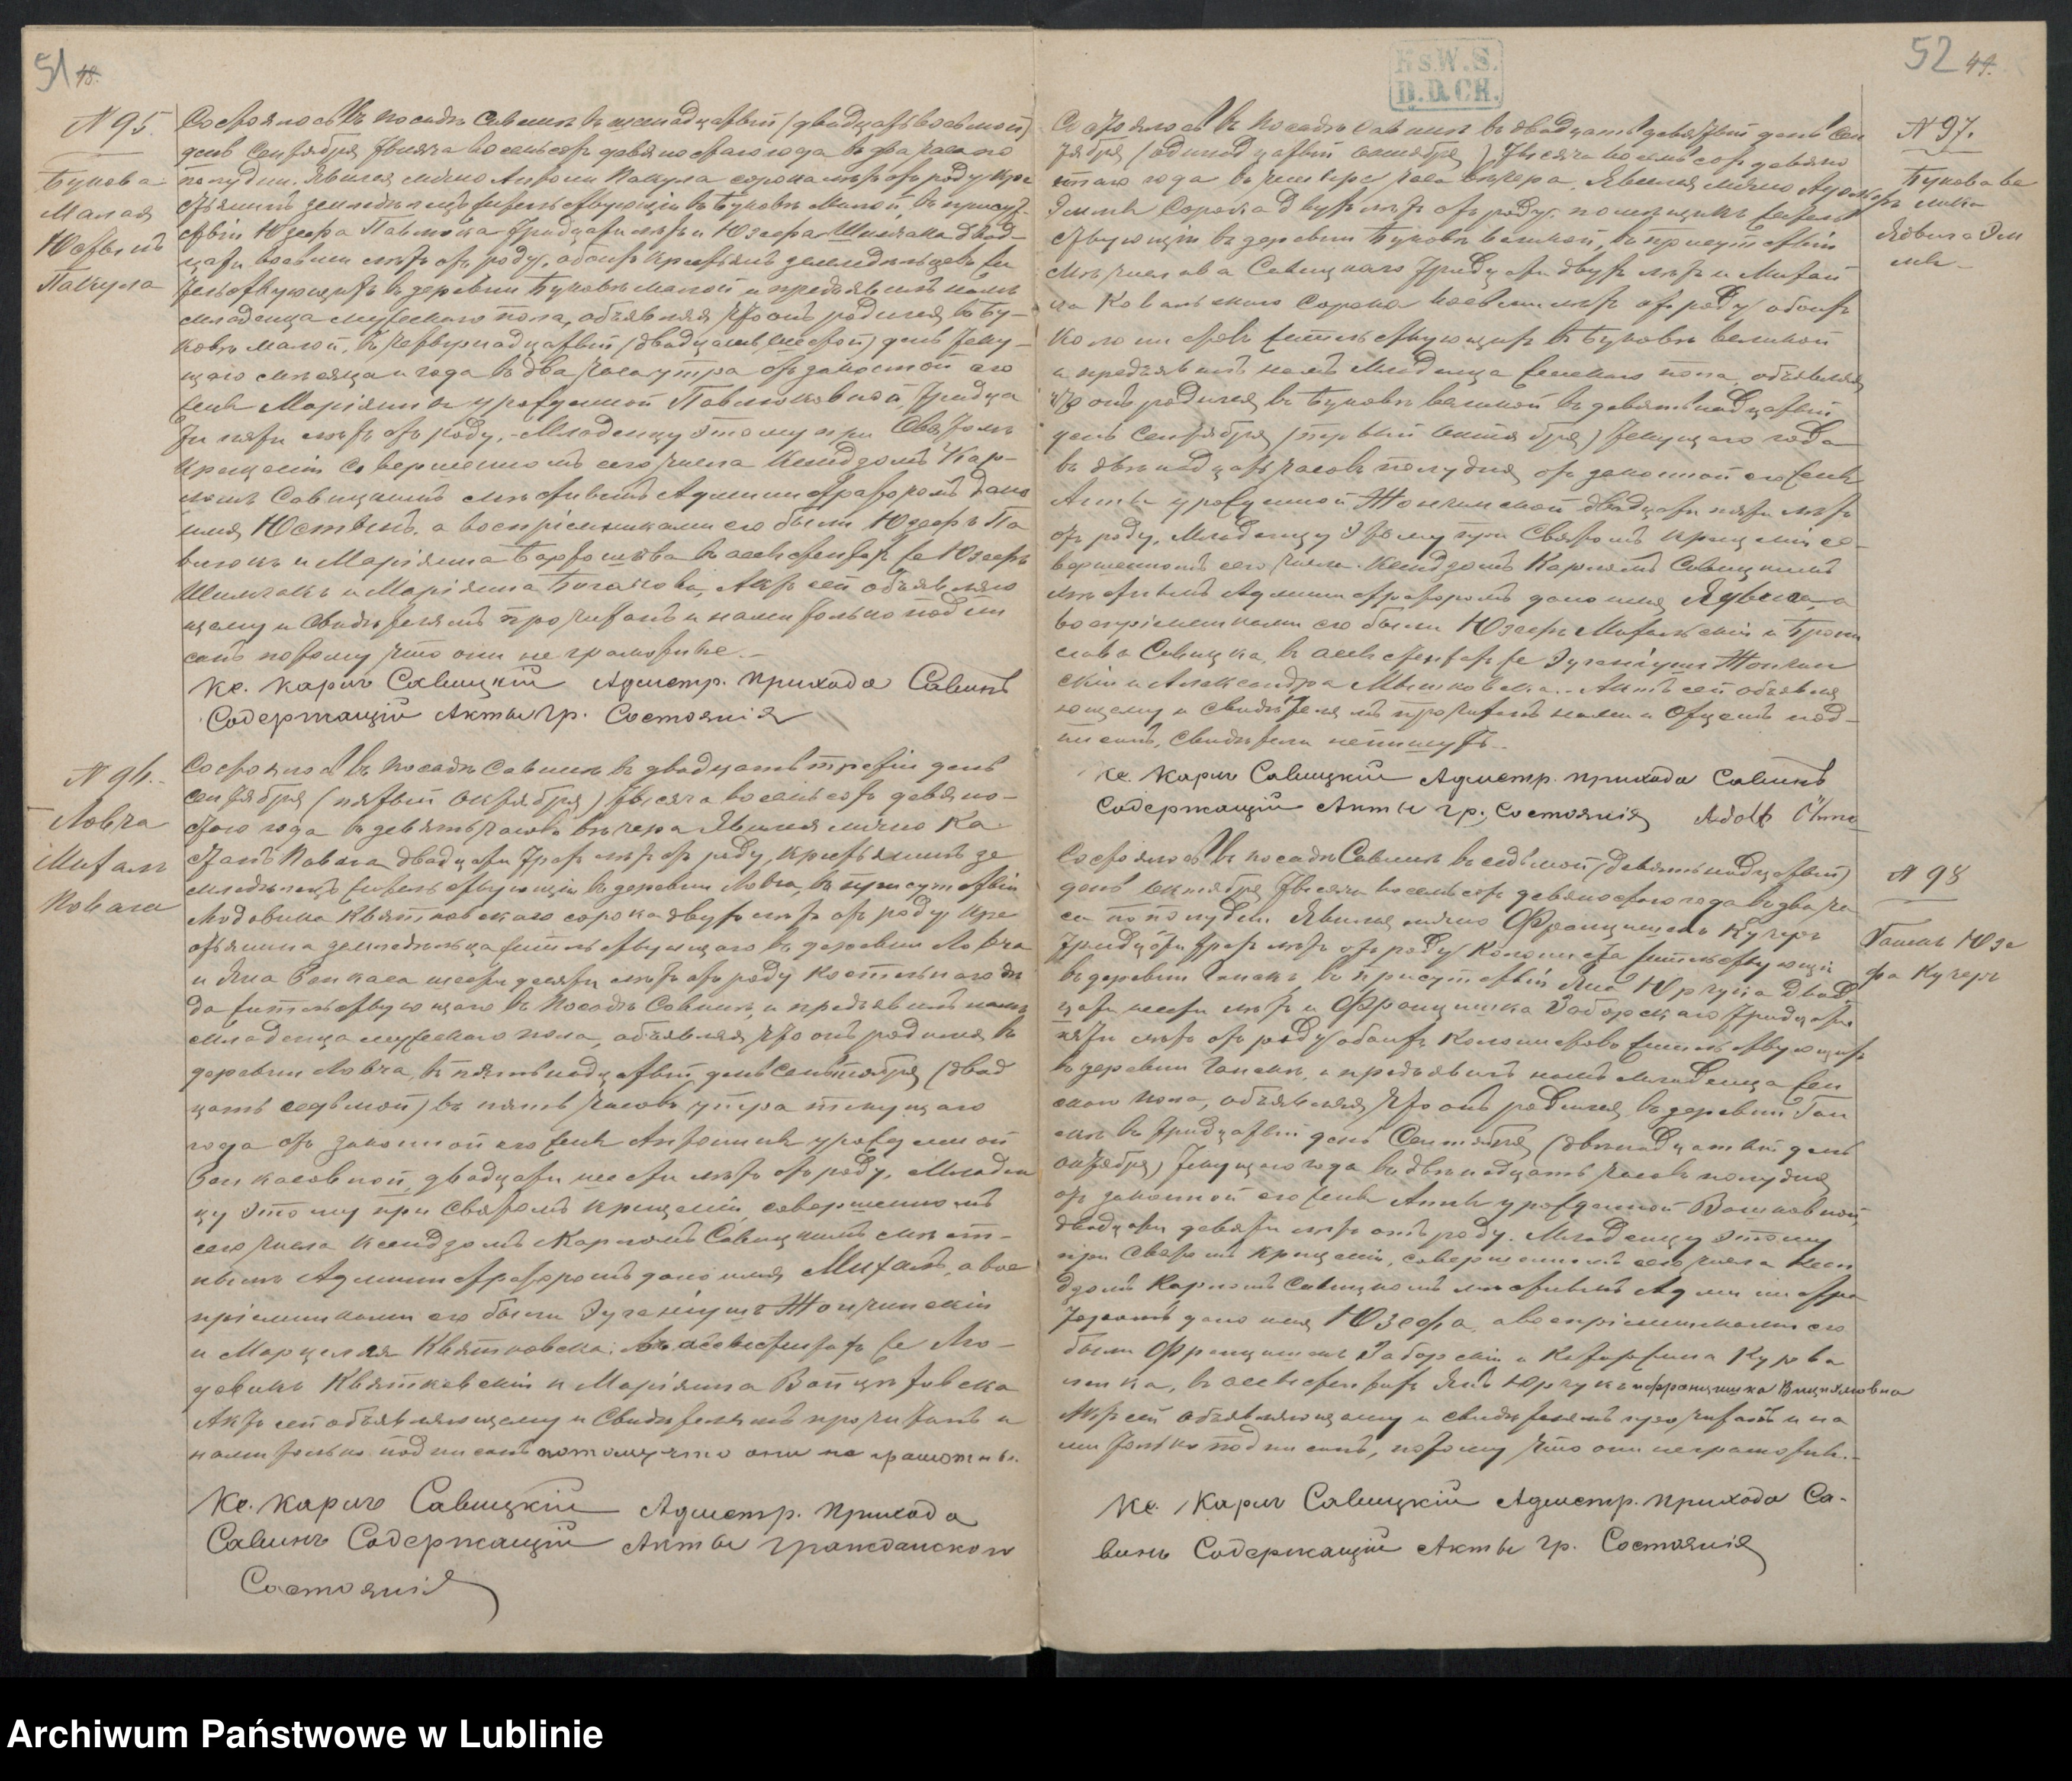 51 48.
N 95.
Букова
Малая
Юстынъ
Пакула
Состоялось въ посадѣ Савинѣ въ шенадцатый (двадцать восьмой)
день Сентября тысяча восемьсотъ девяностаго года въ два часа по
полудни. Явился лично Антони Пакула сорока лѣтъ отъ роду кре
стьянинъ земледѣлецъ жительствующій въ Буковѣ Малой, въ присут-
ствіи Юзефа Павлюка тридцати лѣтъ и Юзефа Шимчака двад-
цати восьми лѣтъ отъ роду, обоихъ крестьянъ земледѣльцевъ жи
тельствующихъ въ деревни Буковѣ малой и предъявилъ намъ
младенца мужескаго пола, объявляя что онъ родился въ Бу-
ковѣ малой, въ четырнадцатый (двадцать шестой) день теку-
щаго мѣсяца и года въ два часа утра отъ законной его
жены Маріянны урожденной Павлюковной тридца
ти пяти лѣтъ отъ роду, - Младенцу этому при Святомъ
Крещеніи совершенномъ сего числа Ксендзомъ Кар-
ломъ Савицкимъ мѣстнымъ Администраторомъ дано
имя Юстынъ, а воспріемниками его были Юзефъ Па
влюкъ и Маріянна въ ассистенціи же Юзефъ
Шимчакъ и Маріянна Актъ сей объявляю
щему и Свидѣтелямъ прочитанъ и нами только подпи
санъ потому что они не грамотные.-
Кс. Кароль Савицкій Адмстр. прихода Савинъ
Содержащій Акты гр. Состоянія
N 96.
Ловча
Михалъ
Ковала
Состоялось въ посадѣ Савинѣ въ двадцать третій день
сентября (пятый октября) тысяча восемьсотъ девяно-
стаго года въ девять часовъ вечера Явился лично Ка
Ковала двадцати трехъ лѣтъ отъ роду, крестьянинъ зе
мледѣлецъ жительствующій въ деревни Ловча, въ присутствіи
Людовика Квятковскаго сорока двухъ лѣтъ отъ роду кре
стьянина земледѣльца жительствующаго въ деревни Ловча
и Яна шести десяти лѣтъ отъ роду костельнаго дѣ
да жительствующаго въ Посадѣ Савинъ, и предъявилъ намъ
младенца мужескаго пола, объявляя что онъ родился въ
деревни Ловча, въ пятнадцатый день Сентября (двад
цать седьмой) въ пять часовъ утра текущаго
года отъ законной его жены Антонины урожденной
двадцати шести лѣтъ отъ роду. Младен
цу этому при Святомъ крещеніи, совершенномъ
сего числа Ксендзомъ Карломъ Савицкимъ мѣст-
нымъ Администраторомъ дано имя Михалъ, а вос
пріемниками его были Эугеніушъ Жончинскій
и Марцелля Квятковска, въ ассистенціи же Лю-
довикъ Квятковскій и Маріянна Войцѣховска
Актъ сей объявляющему и Свидѣтелямъ прочитанъ и
нами только подписанъ потому что они не грамотны.
Кс. Кароль Савицкій Адмстр. прихода
Савинъ Содержащій Акты гражданского
Состоянія
52 49.
Ks.W.S.
D.D.CH.
N 97.
Букова ве
лика
Ядвига Эм
ме
Состоялось въ посадѣ Савинѣ въ двадцать девятый день сен
тября (одинадцатый октября) тысяча восемьсотъ девяно
стаго года въ четыре часа вечера, Явился лично Адольфъ
Эмме Сорока двухъ лѣтъ отъ роду, помѣщикъ житель
ствующій въ деревни Буковѣ великой, въ присутствіи
Мѣчислава Савицкаго тридцати двухъ лѣтъ и Михай
ла Ковальскаго Сорока восьми лѣтъ отъ роду обоихъ
колонистовъ жительствующихъ въ Буковѣ великой
и предъявилъ намъ Младенца женскаго пола, объявляя
что онъ родился въ Буковѣ великой въ девятнадцатый
день Сентября (первый октября) текущаго года
въ двѣнадцать часовъ полудня отъ законной его жены
Анны урожденной Жончинской двадцати пяти лѣтъ
отъ роду. Младенцу этому при Святомъ крещеніи со-
вершенномъ сего числа Ксендзомъ Карломъ Савицкимъ
мѣстнымъ Администраторомъ дано имя Ядвига, а
воспріемниками его были Юзефъ Михальскій и Брони
слава Савицка, въ ассистенціи же Эугеніушъ Жончин
скій и Александра Мышковска. Актъ сей объявля
ющему и Свидѣтелямъ прочитанъ нами и Отцемъ под-
писанъ, Свидѣтели непишутъ.-
Кс. Кароль Савицкій Адмстр. прихода Савинъ
Содержащій Акты гр. Состоянія Adolf Ömme
N 98
Юзе
фа Кучеръ
Состоялось въ посадѣ Савинѣ въ седьмой (девятнадцатый)
день октября тысяча восемьсотъ девяностаго года въ два ча
са по полудни. Явился лично Францишекъ Кучеръ
тридцати трехъ лѣтъ отъ роду Колониста жительствующій
въ деревни въ присутствіи Яна Юрчука двад
цати шести лѣтъ и Францишка Заборскаго тридцати
пяти лѣтъ отъ роду обоихъ Колонистовъ жительствующихъ
въ деревни и предъявилъ намъ младенца жен
скаго пола, объявляя что онъ родился въ деревни
въ тридцатый день Сентября (двѣнадцатый день
октября) текущаго года въ двѣнадцать часовъ полудня
отъ законной его жены Анны урожденной
двадцати девяти лѣтъ отъ роду. Младенцу этому
при Святомъ крещеніи, совершенномъ сего числа Ксен
дзомъ Карломъ Савицкимъ мѣстнымъ Администра
торомъ дано имя Юзефа, а воспріемниками его
были Францишекъ Заборскій и
въ ассистенціи Янъ Юрчукъ и Францишка
Актъ сей объявляющему и свидѣтелямъ прочитанъ и на
ми только подписанъ, потому что они неграмотные.-
Кс. Кароль Савицкій Адмстр. прихода Са-
винъ Содержащій Акты гр. Состоянія
Archiwum Państwowe w Lublinie